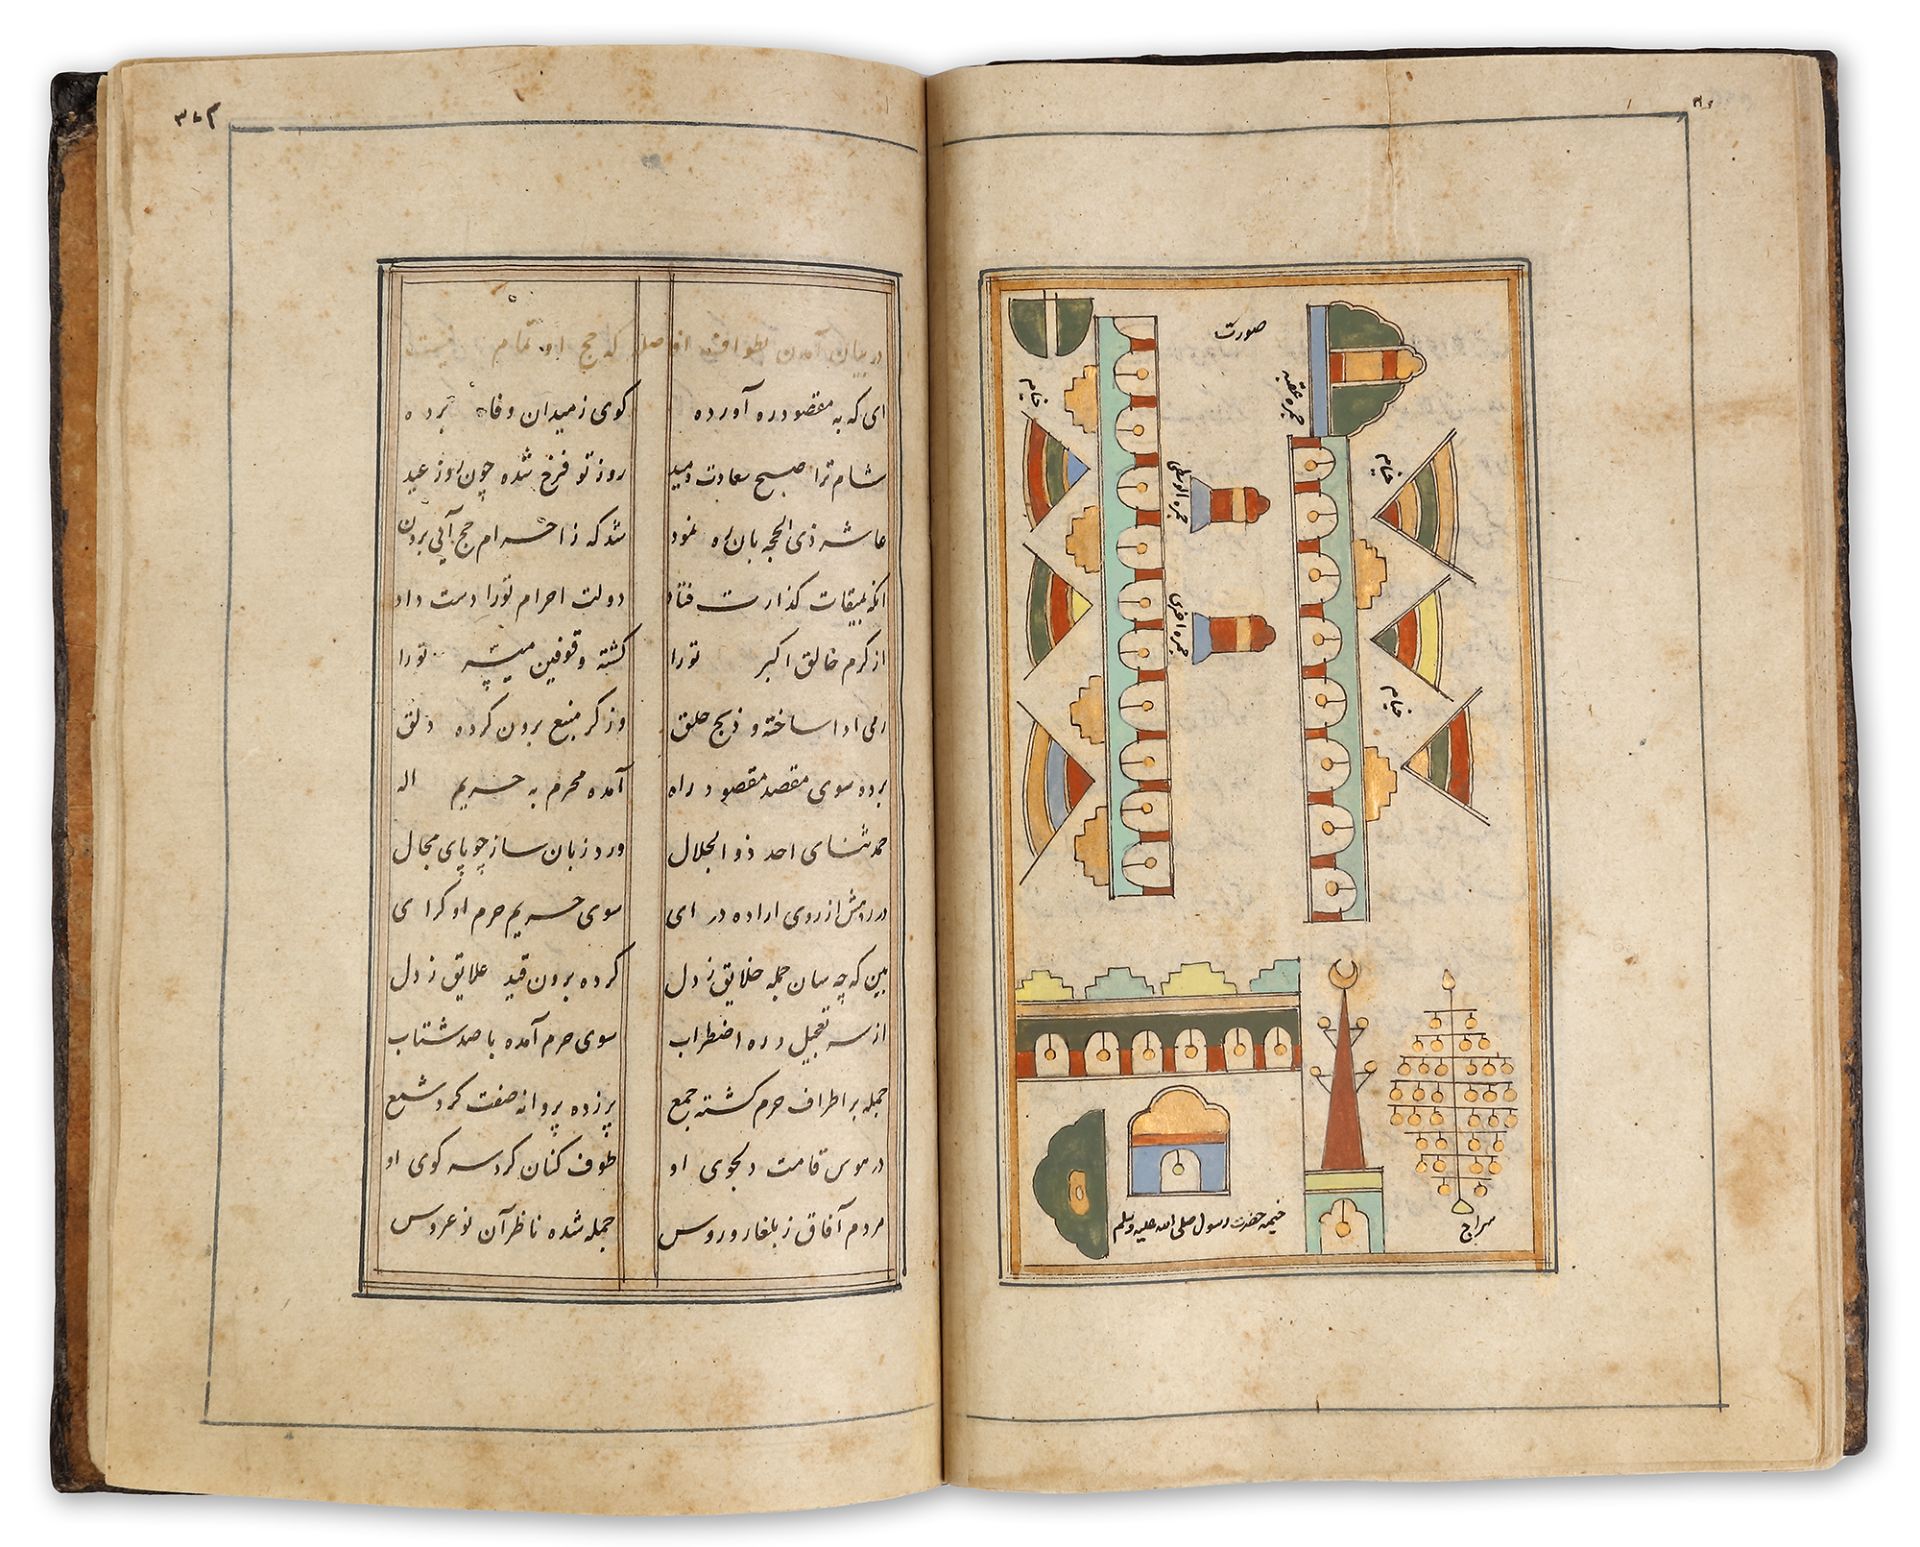 صورت
جمره عقبه
خیام
خیام
خیام
جمره الوسطی
جمره اخری
سراج
خیمه حضرت رسول صلی الله علیه وسلم
در بیان آمدن بطواف افاضله که حج او تمام نیست
ای که به مقصود ره آورده گوی ز میدان وفا برده
شام ترا صبح سعادت دمید روز تو فرخ شده چون روز عید
عاشر ذی الحجه بان ره نمود شد که ز احرام حج آئی برون
انکه بمیقات گذارت فتاد دولت احرام تورا دست داد
از کرم خالق اکبر تورا گشته وقوفین میسر تورا
رمی ادا ساخته و ذبح حلق وز کر منبع برون کرده دلق
برده سوی مقصد مقصود راه آمده محرم به حریم اله
حمد ثنای احد ذوالجلال ورد زبان ساز چو پای مجال
در روش از روی اراده در ای سوی حریم حرم او گرای
بین که چه سان جمله خلایق ز دل کرده برون قید علایق ز دل
از سر تعجیل و ره اضطراب سوی حرم آمده با صد شتاب
جمله بر اطراف حرم گشته جمع پر زده پروانه صفت گرد شمع
در هوس قامت دلجوی او طوف کنان گرد سر کوی او
مردم آفاق ز بلغار و روس جمله شده ناظر آن نو عروس